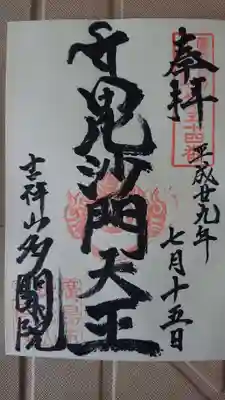 奉拝
平成廿九年
七月十五日
毘沙門天王
吉祥山多聞院